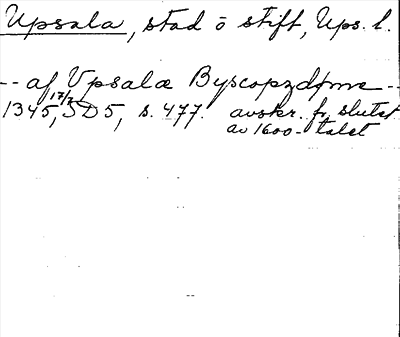 Upsala, stad o stift, Ups. l.
-- af Vpsalæ Byscopzdøme --
1345 17/7, SD5, s. 477. avskr. fr. slutet
av 1600-talet